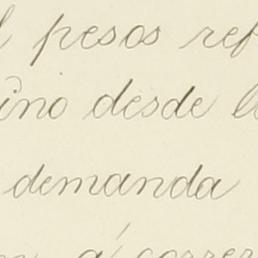 pesos ref
ino desde l
demanda
a correr